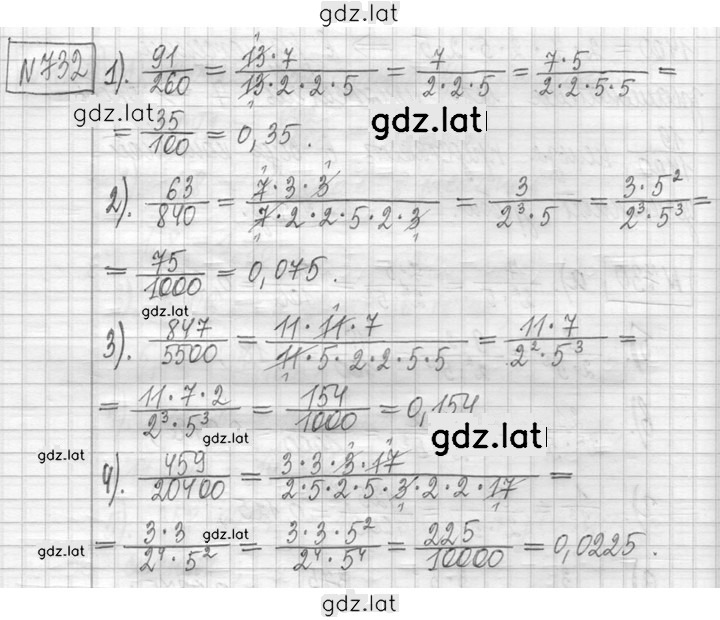 gdz.lat
N732 1). 91/260 = 13·7/13·2·2·5 = 7/2·2·5 = 7·5/2·2·5·5 =
gdz.lat
= 35/100 = 0,35.
gdz.lat
2). 63/840 = 7·3·3/7·2·2·5·2·3 = 3/2³·5 = 3·5²/2³·5³ =
= 75/1000 = 0,075.
gdz.lat
3). 847/5500 = 11·11·7/11·5·2·2·5·5 = 11·7/2²·5³ =
= 11·7·2/2³·5³ = 154/1000 = 0,154
gdz.lat
gdz.lat
gdz.lat
4). 459/20400 = 3·3·3·17/2·5·2·5·3·2·2·17 =
= 3·3/2⁴·5² = 3·3·5²/2⁴·5⁴ = 225/10000 = 0,0225.
gdz.lat
gdz.lat
gdz.lat